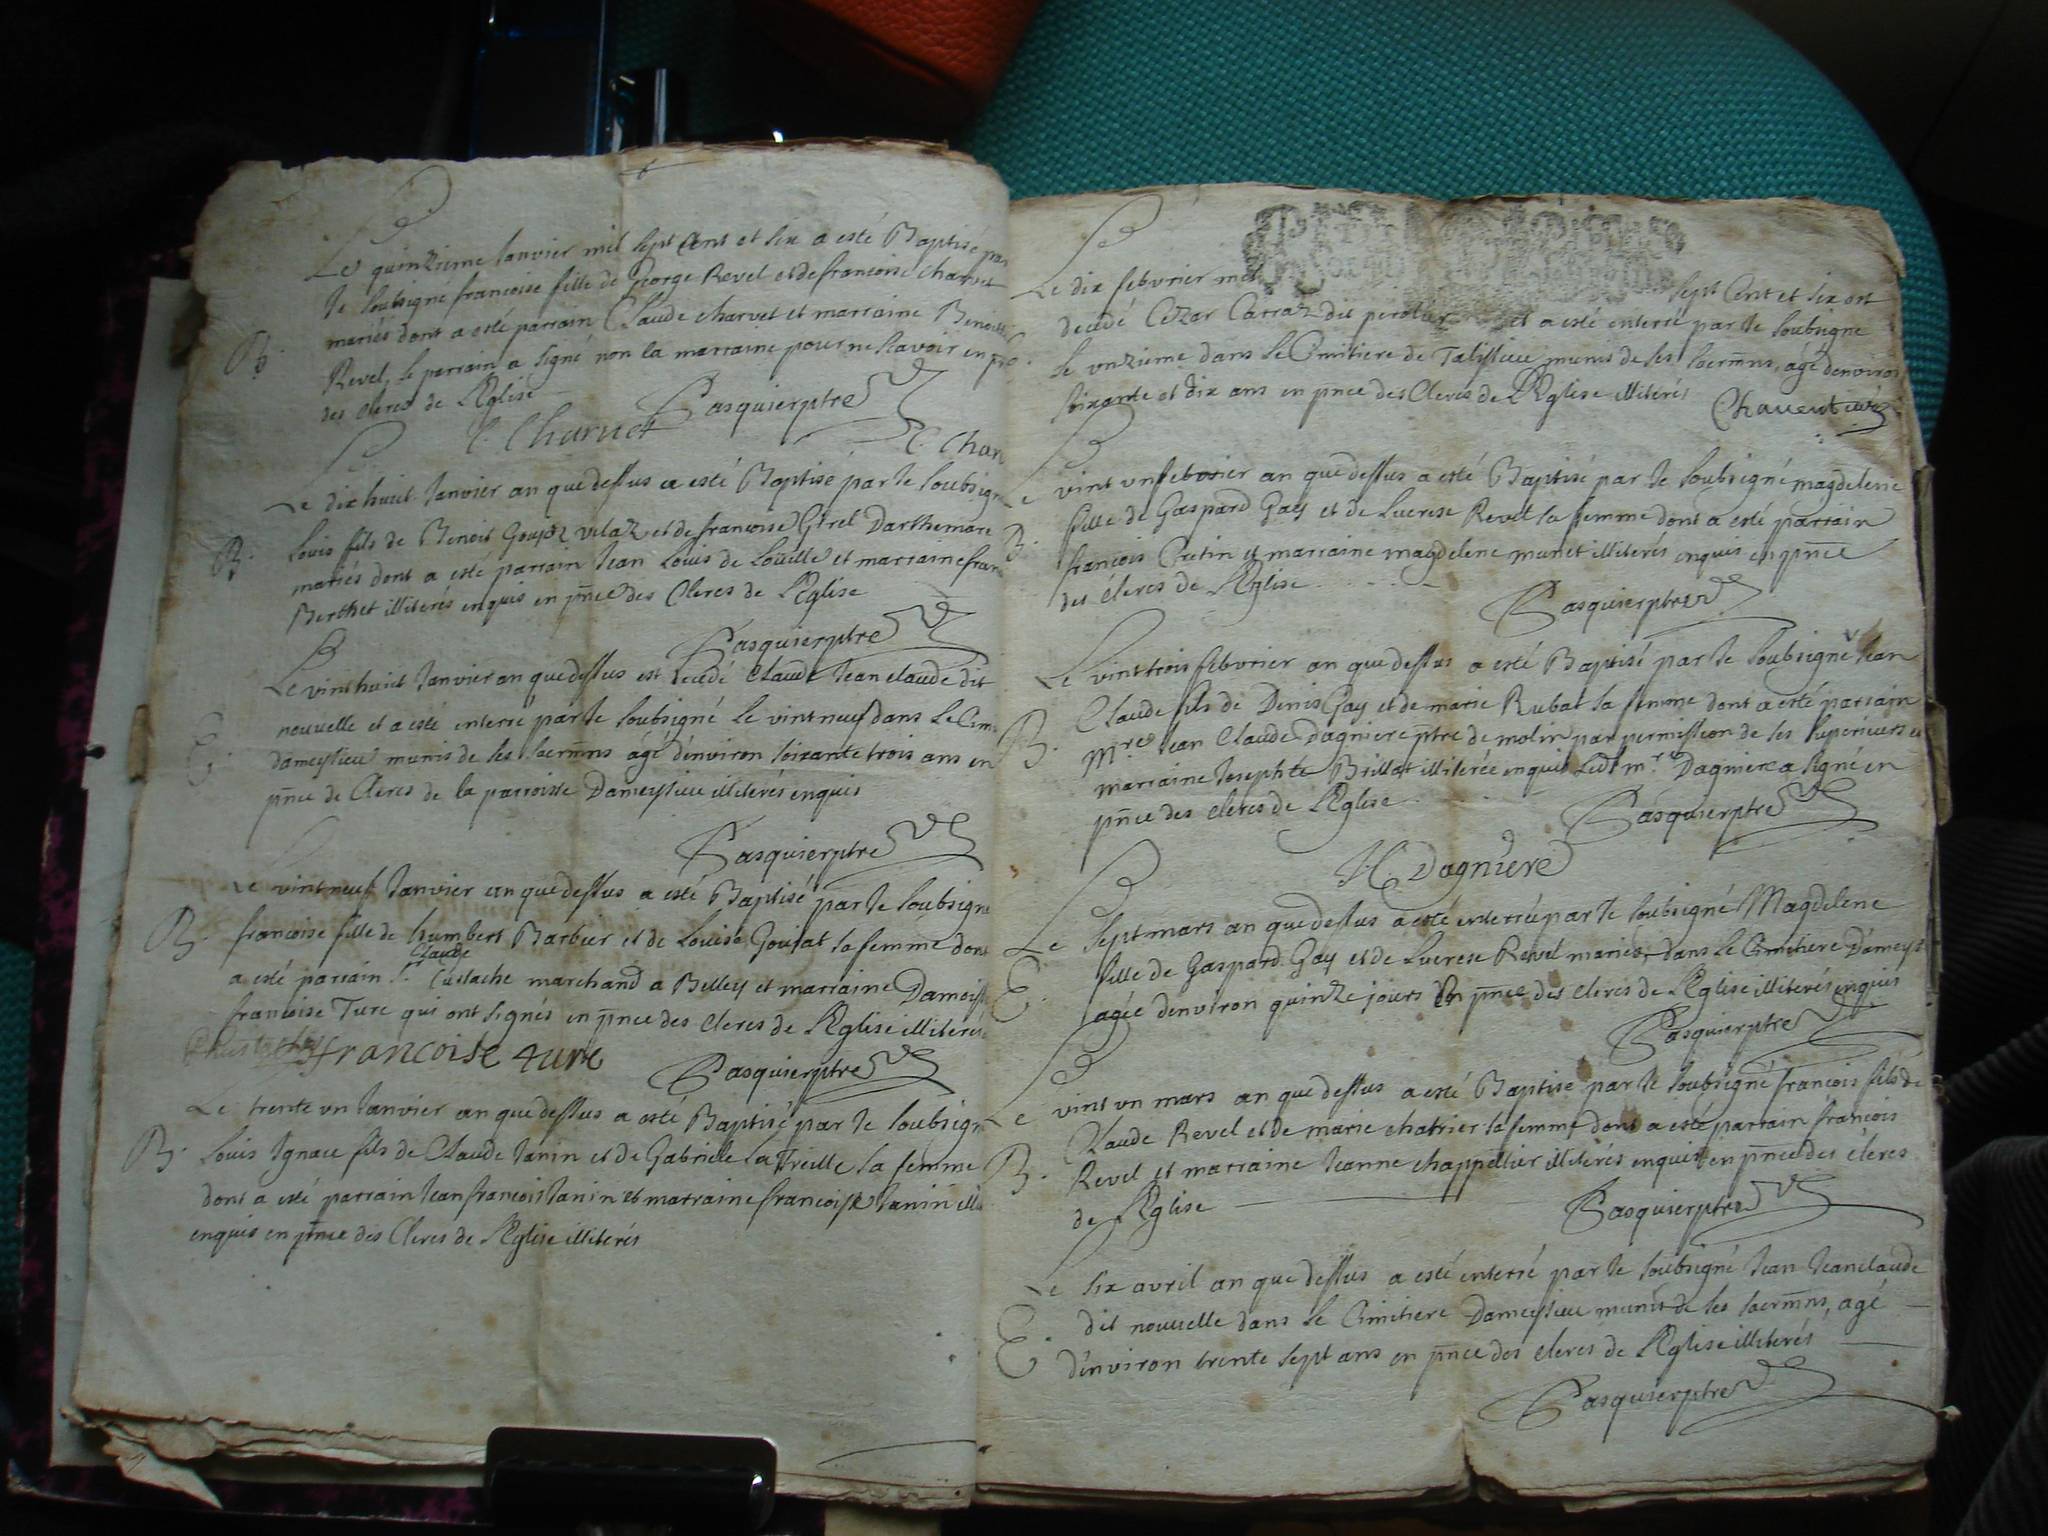 Le quinzieme Janvier mil sept Cent et six a esté Baptisé par
Je soubsigné francoise fille de George Revel et de francoise Charvet
mariés dont a esté parrain Claude charvet et marraine Benoitte
B.
Revel, le parrain a signé non la marraine pour ne scavoir en
des Clercs de L'Eglise
Pasquier ptre
C. Charuet
Le dix huict Janvier an que dessus a esté Baptisé par Je soubsigné
B.
Louis fils de Benoit velaz et de francoise Girel Darthemare
mariés dont a esté parrain Jean Louis de Loüille et marraine
Berthet illiterés enquis en pñce des Clercs de L'Eglise
Pasquier ptre
Le vint huict Janvier an que dessus est decedé Claude Jeanclaude dit
nouvelle et a esté enterré par Je soubsigné le vint neuf dans le
E.
dameysieu munis de ses sacrm̃ns âgé d'environ soixante trois ans en
pñce de Clercs de la parroisse Dameysieu illiterés enquis
Pasquier ptre
Le vint neuf Janvier an que dessus a esté Baptisé par Je soubsigné
B.
francoise fille de humbert Barbier et de Louise Goujat sa femme dont
Claude
a esté parrain Sr. Eustache marchand a Belley et marraine
francoise Turc qui ont signés en pñce des Clercs de L'Eglise illiterés
francoise turc
Pasquier ptre
Le trente un Janvier an que dessus a esté Baptisé par Je soubsigné
B.
Louis Ignace fils de Claude Janin et de Gabriele la Treille sa femme
dont a esté parrain Jean francois Janin et marraine francoise Janin
enquis en pñce des Clercs de L'Eglise illiterés
Le dix febvrier mil sept Cent et six est
decedé Cezar Carraz dit et a esté enterré par Je soubsigné
Le vnzieme dans le Cimitiere de Talissieu munis de ses sacrm̃ns, agé denviron
soixante et dix ans en pñce des Clercs de L'Eglise illiterés
Le vint un febvrier an que dessus a esté Baptisé par Je soubsigné magdelene
B.
fille de Gaspard Gay et de Lucrese Revel sa femme dont a esté parrain
francois Cretin et marraine magdelene munet illiterés enquis en pñce
des clercs de L'Eglise
Pasquier ptre
Le vint trois febvrier an que dessus a esté Baptisé par Je soubsigné Jean
Claude fils de Denis Gay et de marie Rubat sa femme dont a esté parrain
B.
Mre Jean Claude Dagniere ptre de molin par permission de ses superieurs et
marraine Josephte Brillat illiterée enquis Ledt mre Dagniere a signé en
pñce des clercs de L'Eglise
Pasquier ptre
Dagniere
Le sept mars an que dessus a esté enterrée par Je soubsigné Magdelene
fille de Gaspard Gay et de Lucrese Revel mariés, dans le Cimitiere
E.
agée denviron quinze jours En pñce des clercs de L'Eglise illiterés enquis
Pasquier ptre
Le vint un mars an que dessus a esté Baptisé par Je soubsigné francois fils de
Claude Revel et de marie chatrier sa femme dont a esté parrain francois
B.
Revel et marraine Jeanne chappellier illiterés enquis en pñce des clercs
de L'Eglise
Pasquier ptre
Le six avril an que dessus a esté enterré par Je soubsigné Jean Jeanclaude
E.
dit nouvelle dans le Cimitiere Dameysieu munis de ses sacrm̃ns, agé
d'environ trente sept ans en pñce des clercs de L'Eglise illiterés
Pasquier ptre